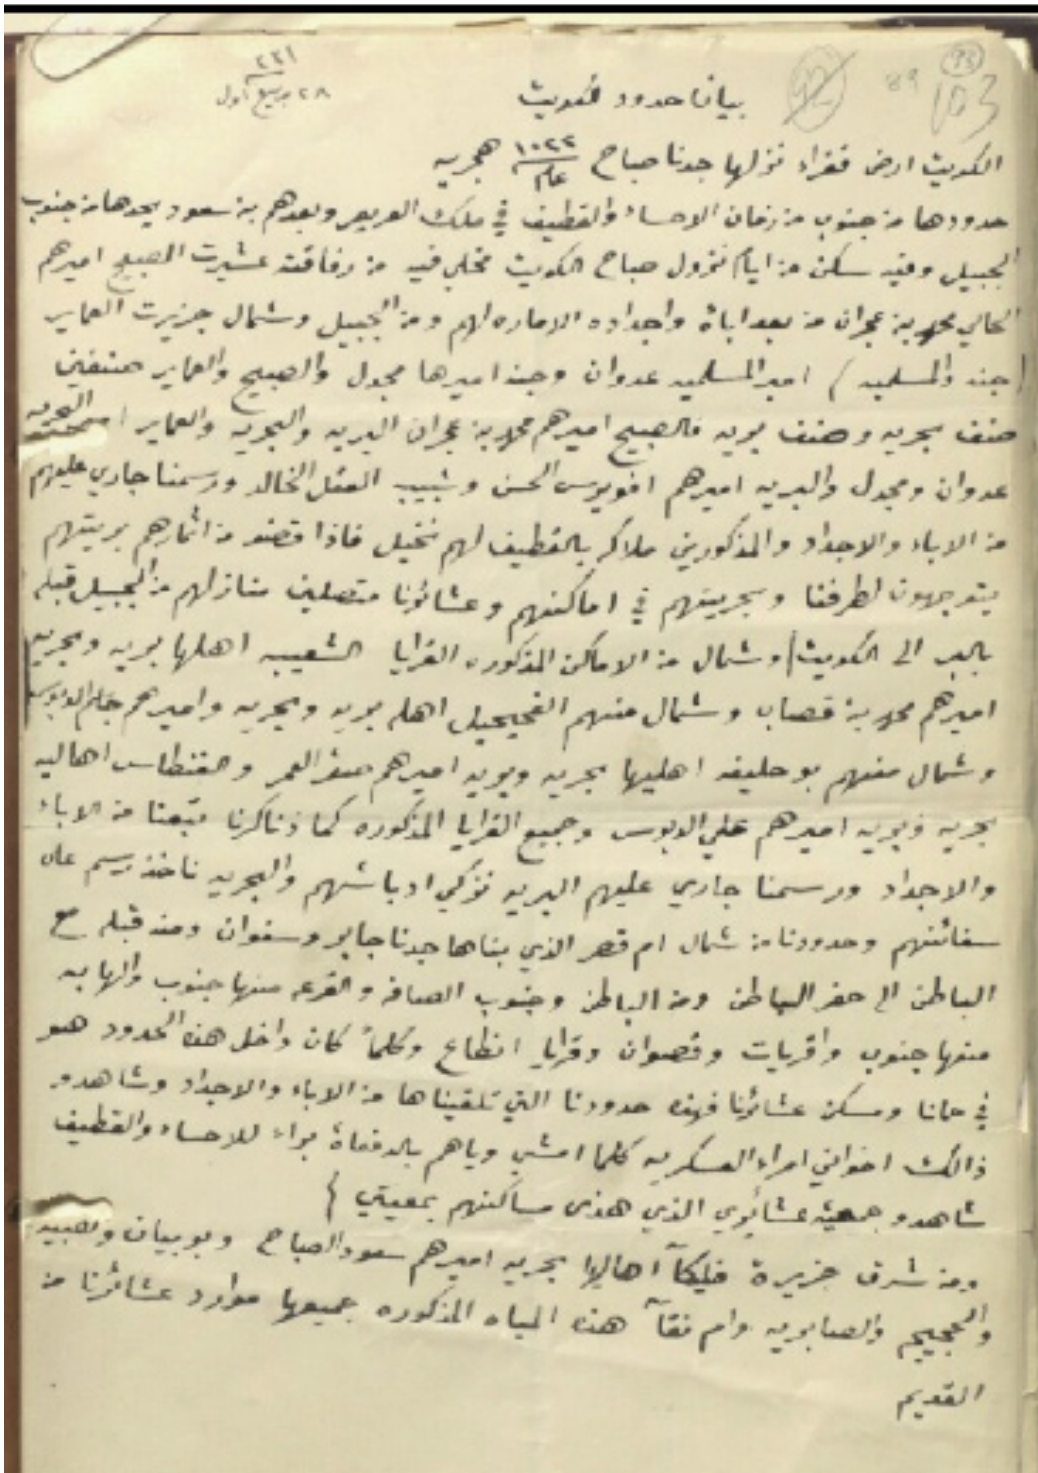 ٢٢١
٢٨ ربيع اول
93
89
103
بيان حدود الكويت
الكويت ارض قفراء نزلها جدنا صباح عام ١٠٢٢ هجريه
حدودها من جنوب من زمان الاحساء والقطيف في ملك العريعر وبعدهم بن سعود يحدها من جنوب
الجبيل وفيه سكن من ايام نزول صباح الكويت مخلي فيه من رفاقته عشيرت الصبيح اميرهم
الحالي محمد بن عجران من بعد اباة واجداده الاماره لهم ومن الجبيل وشمال جزيرت العماير
(جنه والمسلميه) امير المسلميه عدوان وجنه اميرها مجدل والصبيح والعماير صنفين
صنف بحريه وصنف بريه فالصبيح اميرهم محمد بن عجران البريه والبحريه والعماير البحريه
عدوان ومجدل والبريه اميرهم الحسن وشبيب الخالد ورسمنا جاري عليهم
من الاباء والاجداد والمذكورين ملاكه بالقطيف لهم نخيل فاذا قضو من اثمارهم بريتهم
يتوجهون لطرفنا وبحريتهم في اماكنهم وعشائرنا متصلين منازلهم من الجبيل قبله
بالبر الى الكويت / وشمال من الاماكن المذكوره القرايا الشعيبه اهلها بريه وبحريه
اميرهم محمد بن قصاب وشمال منهم الفحيحيل اهله بريه وبحريه واميرهم الدبوس
وشمال منهم بوحليفه اهليها بحريه وبريه اميرهم صقر العمر والفنطاس اهاليه
بحريه وبريه اميرهم علي الدبوس وجميع القرايا المذكوره كما ذكرنا تبعنا من الاباء
والاجداد ورسمنا جاري عليهم البريه نزكي ادباشهم والبحريه ناخذ رسم على
سفائنهم وحدودنا من شمال ام قصر الذي بناها جدنا جابر وسفوان ومنه قبله مع
الباطن الى حفر الباطن ومن الباطن وجنوب الصافه والقرعه منها جنوب والهابه
منها جنوب واقريات وقصوان وقرايا انطاع وكلما كان داخل هذه الحدود هو
في حمانا ومسكن عشائرنا فهذه حدودنا التي تلقيناها من الاباء والاجداد وشاهدو
ذالك اخواني امراء العسكريه كلما امشي وياهم بالدفعاة براء للاحساء والقطيف
شاهدو جميع عشائري الذي هذى مساكنهم بمعيتي
ومن شرق جزيرة فيلكآ اهاليها بحريه اميرهم سعود الصباح وبوبيان والصبيه
والجحيح والصابريه وام نقآ هذه المياه المذكوره جميعها موارد عشائرنا من
القديم